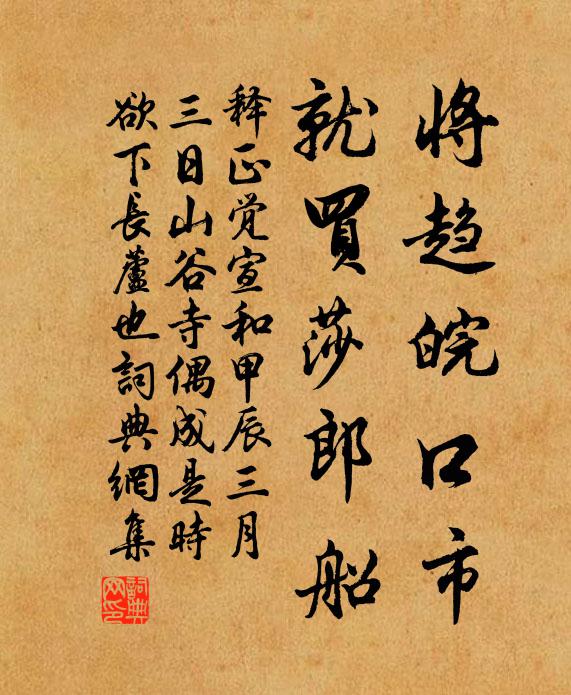 将趋皖口市
就買莎郎船
释正觉宣和甲辰三月
三日山谷寺偶成是時
欲下長蘆也詞典網集
詞典
网印